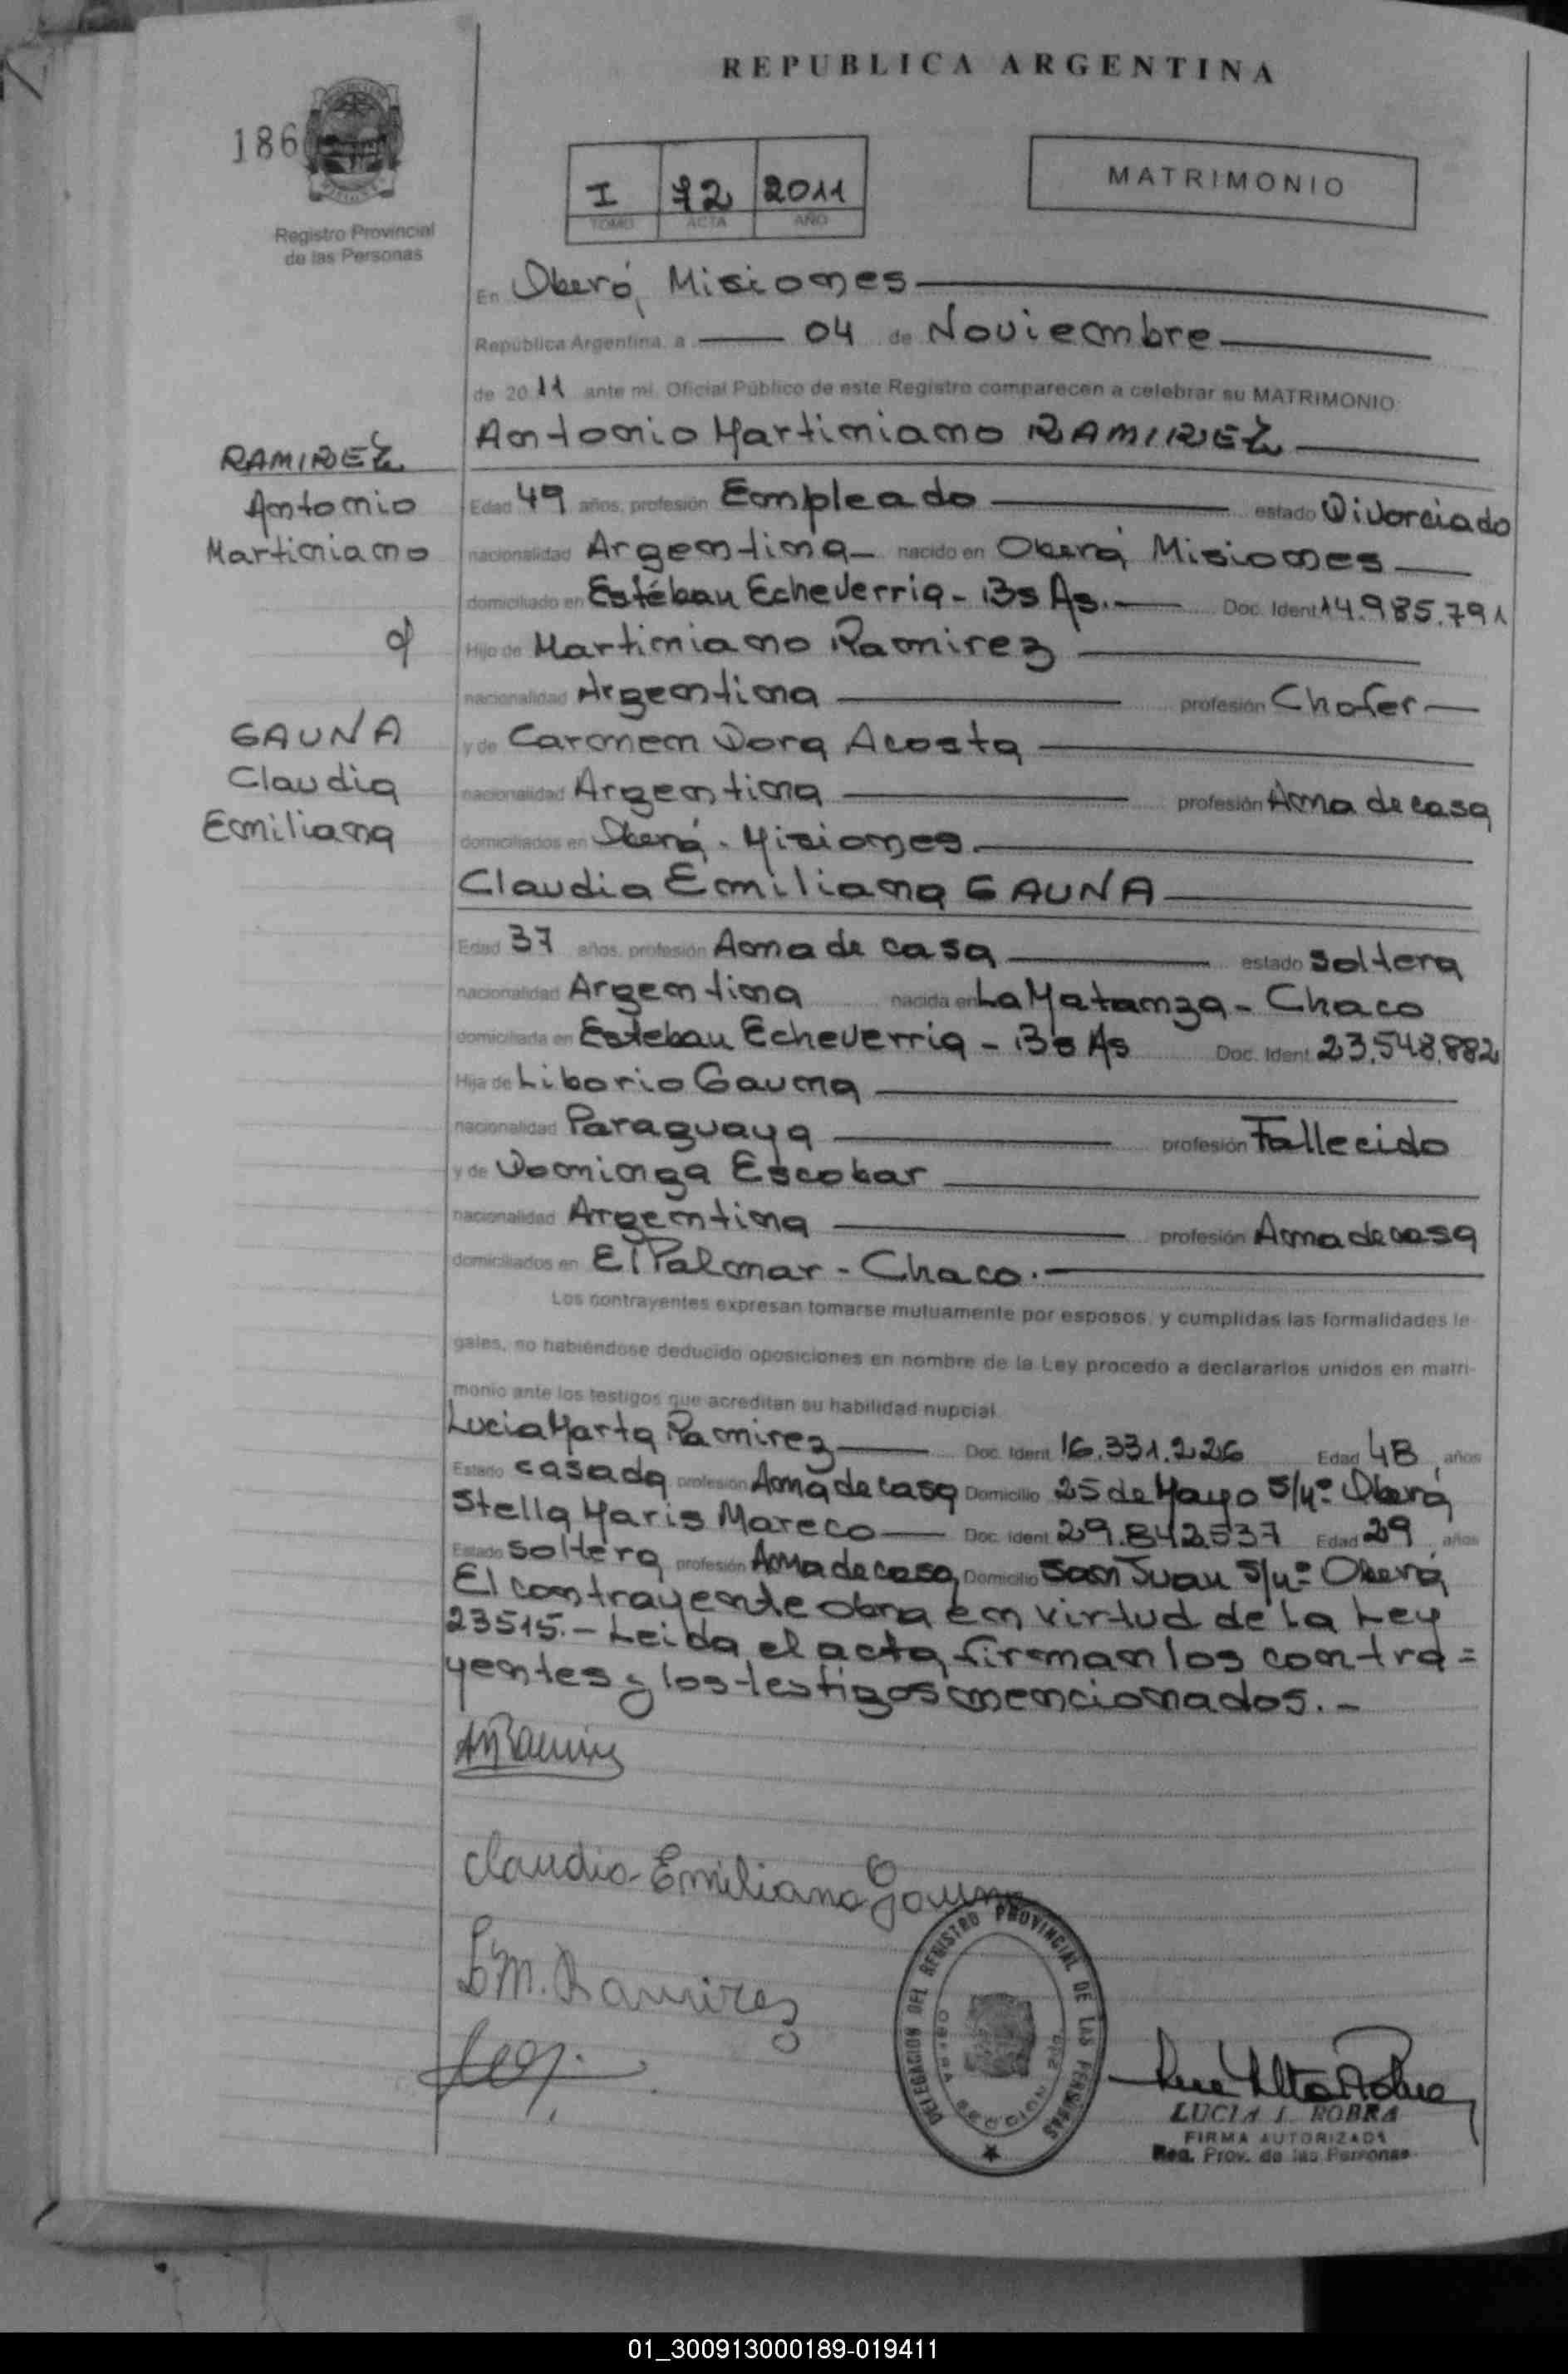 REPUBLICA ARGENTINA
186
Registro Provincial
de las Personas
I 72 2011
TOMO ACTA AÑO
MATRIMONIO
En Oberá, Misiones
República Argentina, a 04 de Noviembre
de 2011 ante mí, Oficial Público de este Registro comparecen a celebrar su MATRIMONIO:
Antonio Martiniano RAMIREZ
RAMIREZ
Antonio
Martiniano
Edad 49 años, profesión Empleado estado Divorciado
nacionalidad Argentina nacido en Oberá Misiones
domiciliado en Estéban Echeverria - Bs As. Doc. Ident. 14.985.791
Hijo de Martiniano Ramirez
nacionalidad Argentina profesión Chofer
GAUNA
Claudia
Emiliana
y de Carmen Dora Acosta
nacionalidad Argentina profesión Ama de casa
domiciliados en Oberá - Misiones.
Claudia Emiliana GAUNA
Edad 37 años, profesión Ama de casa estado Soltera
nacionalidad Argentina nacida en La Matanza - Chaco
domiciliada en Esteban Echeverria - Bs As Doc. Ident. 23.548.882
Hija de Liborio Gauna
nacionalidad Paraguaya profesión Fallecido
y de Dominga Escobar
nacionalidad Argentina profesión Ama de casa
domiciliados en El Palmar - Chaco.
Los contrayentes expresan tomarse mutuamente por esposos, y cumplidas las formalidades le-
gales, no habiéndose deducido oposiciones en nombre de la Ley procedo a declararlos unidos en matri-
monio ante los testigos que acreditan su habilidad nupcial
Lucia Marta Ramirez Doc. Ident. 16.331.226 Edad 48 años
Estado casada profesión Ama de casa Domicilio 25 de Mayo S/nº Oberá
Stella Maris Mareco Doc. Ident. 29.842.537 Edad 29 años
Estado soltera profesión Ama de casa Domicilio San Juan S/nº Oberá
El contrayente obra en virtud de la Ley
23515.- Leida el acta, firman los contra=
yentes y los testigos mencionados.-
Claudia Emiliana Gauna
L M. Ramirez
DELEGACION DEL REGISTRO PROVINCIAL DE LAS PERSONAS
LUCIA I. ROBRA
FIRMA AUTORIZADA
Reg. Prov. de las Personas
01_300913000189-019411